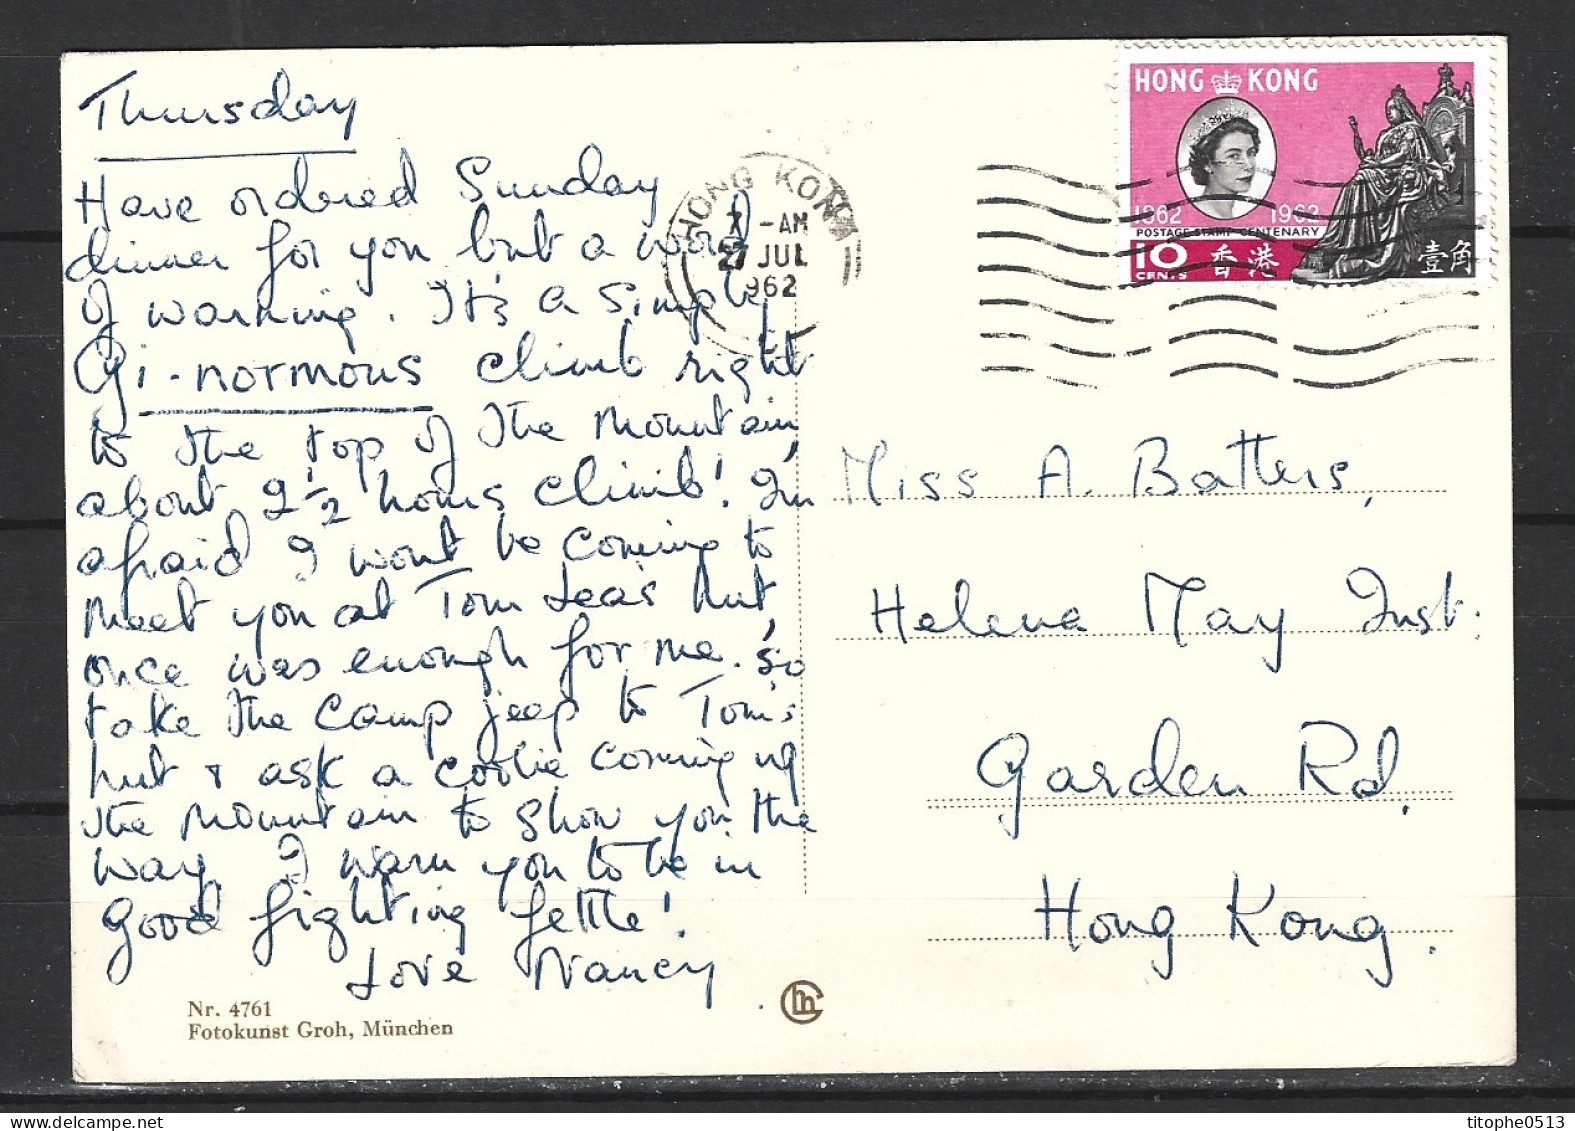 Thursday
Have ordered Sunday
dinner for you but a word
of warning. It's a simply
Gi-normous climb right
to the top of the mountain,
about 2 1/2 hours climb! I'm
afraid I wont be coming to
meet you at Tom Leas hut,
once was enough for me. So
take the camp jeep to Tom's
hut & ask a coolie coming up
the mountain to show you the
way. I warn you to be in
good fighting fettle!
Love Nancy
Nr. 4761
Fotokunst Groh, München
HONG KONG
7 - AM
27 JUL
1962
HONG KONG
1862 1962
POSTAGE STAMP CENTENARY
10 CENTS 香港 壹角
Miss A. Batters,
Helena May Inst:
Garden Rd.
Hong Kong.
titophe0513